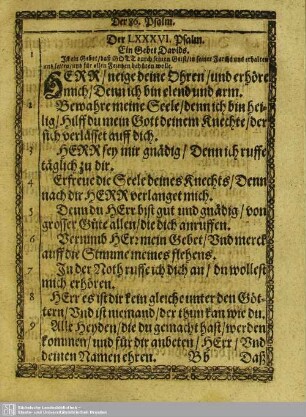 Der 86. Psalm.
Der LXXXVI. Psalm.
1. Ein Gebet Davids.
Ist ein Gebet/ daß GOTT durch seinen Geist/ in seiner Furcht uns erhalten
und für allen Feinden behüten wolle.
HERR/ neige deine Ohren/ und erhöre
mich/ Denn ich bin elend und arm.
2. Bewahre meine Seele/ denn ich bin hei-
lig/ Hilff du mein Gott deinem Knecht/ der
sich verlässet auff dich.
3. HERR sey mir gnädig/ Denn ich ruffe
täglich zu dir.
4. Erfreue die Seele deines Knechts/ Denn
nach dir HERR verlanget mich.
5. Denn du HErr bist gut und gnädig/ von
grosser Güte allen/ die dich anruffen.
6. Vernimb HErr mein Gebet/ Und merck
auff die Stimme meines flehens.
7. In der Noth ruffe ich dich an/ du wollest
mich erhören.
8. HErr es ist dir kein gleiche unter den Göt-
tern/ Und ist niemand/ der thun kan wie du.
9. Alle Heyden/ die du gemacht hast/ werden
kommen/ und für dir anbeten/ HErr/ Und
deinen Namen ehren. Bb Daß